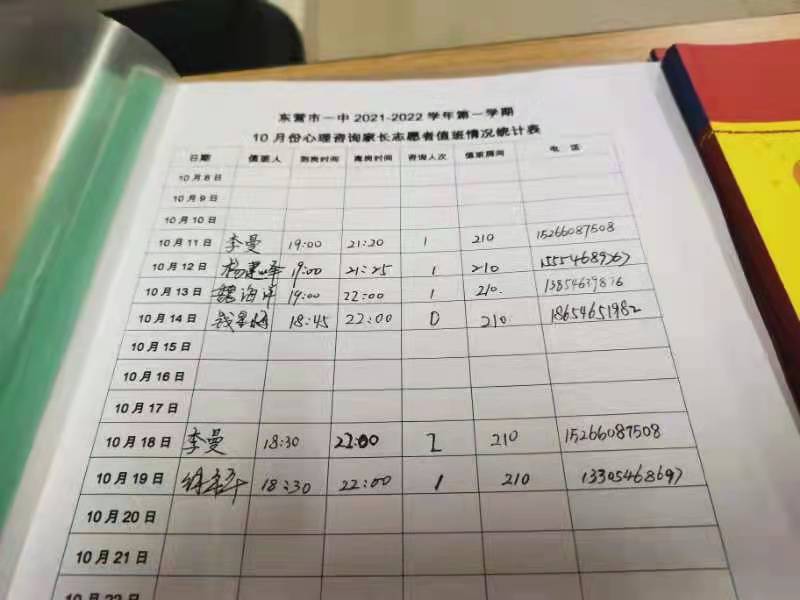 东营市一中 2021-2022 学年第一学期
10 月份心理咨询家长志愿者值班情况统计表
日期 值班人 到岗时间 离岗时间 咨询人次 值班房间 电话
10 月 8 日
10 月 9 日
10 月 10 日
10 月 11 日 李曼 19:00 21:20 1 210 15266087508
10 月 12 日 杨建峰 19:00 21:25 1 210
10 月 13 日 魏海洋 19:00 22:00 1 210.
10 月 14 日 18:45 22:00 0 210 18654651982
10 月 15 日
10 月 16 日
10 月 17 日
10 月 18 日 李曼 18:30 22:00 2 210 15266087508
10 月 19 日 18:30 22:00 1 210 13305468697
10 月 20 日
10 月 21 日
10 月 22 日